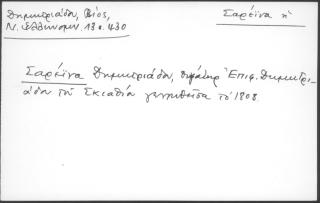 Δημητριάδου, Βίος,
Ν. Ἑλληνομν. 13 σ. 430
Σαρέϊνα ἡ
Σαρέϊνα Δημητριάδου, θυγάτηρ Ἐπιφ. Δημητρι-
άδου τοῦ Σκιαθίου γεννηθεῖσα τὸ 1808.